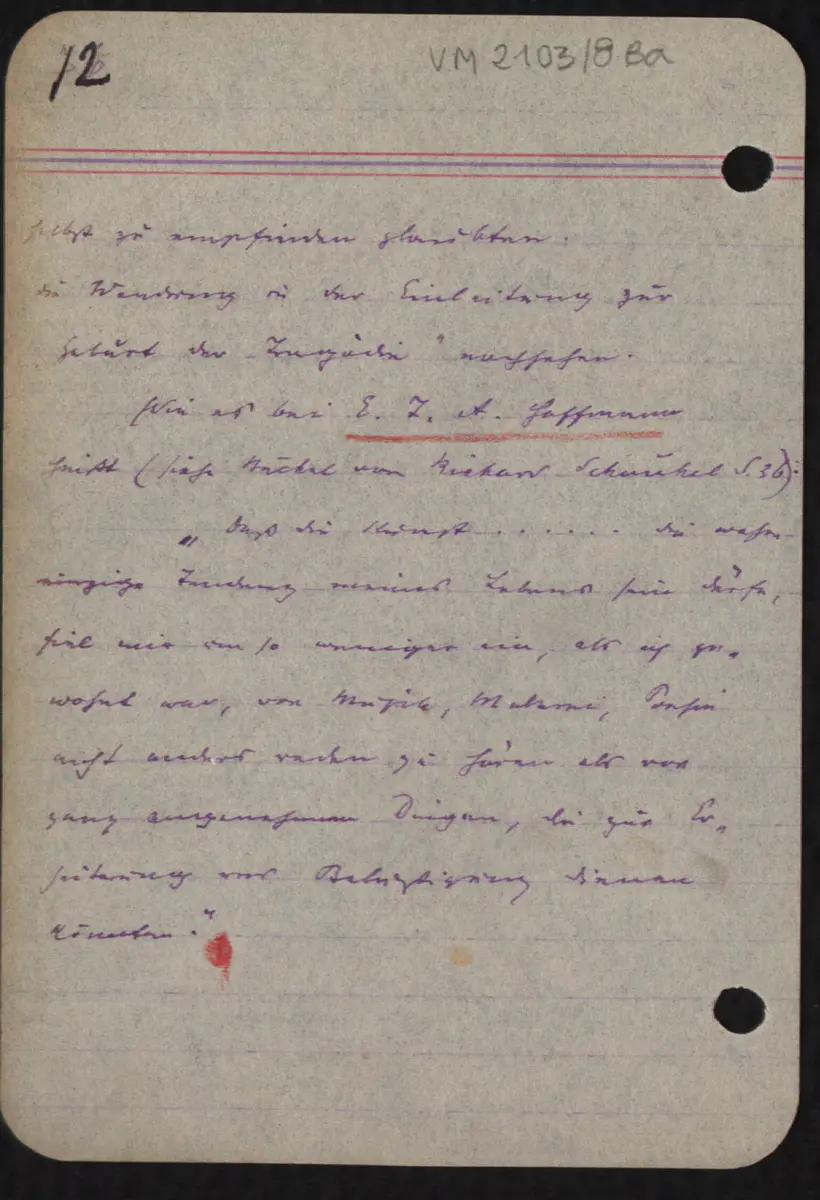 12
VM 2103/8 Ba
selbst zu empfinden glaubten.
die Wendung in der Einleitung zur
Geburt der Tragödie" nachsehen.
Wie es bei E. T. A. Hoffmann
heißt (siehe von Richard Schaukal S. 36):
„Daß die Kunst . . . . . . die wahre
einzige Tendenz meines Lebens sein dürfe,
fiel mir um so weniger ein, als ich ge-
wohnt war, von Musik, Malerei, Poesie
nicht anders reden zu hören als von
ganz angenehmen Dingen, die zur Er-
heiterung und Belustigung dienen
könnten."